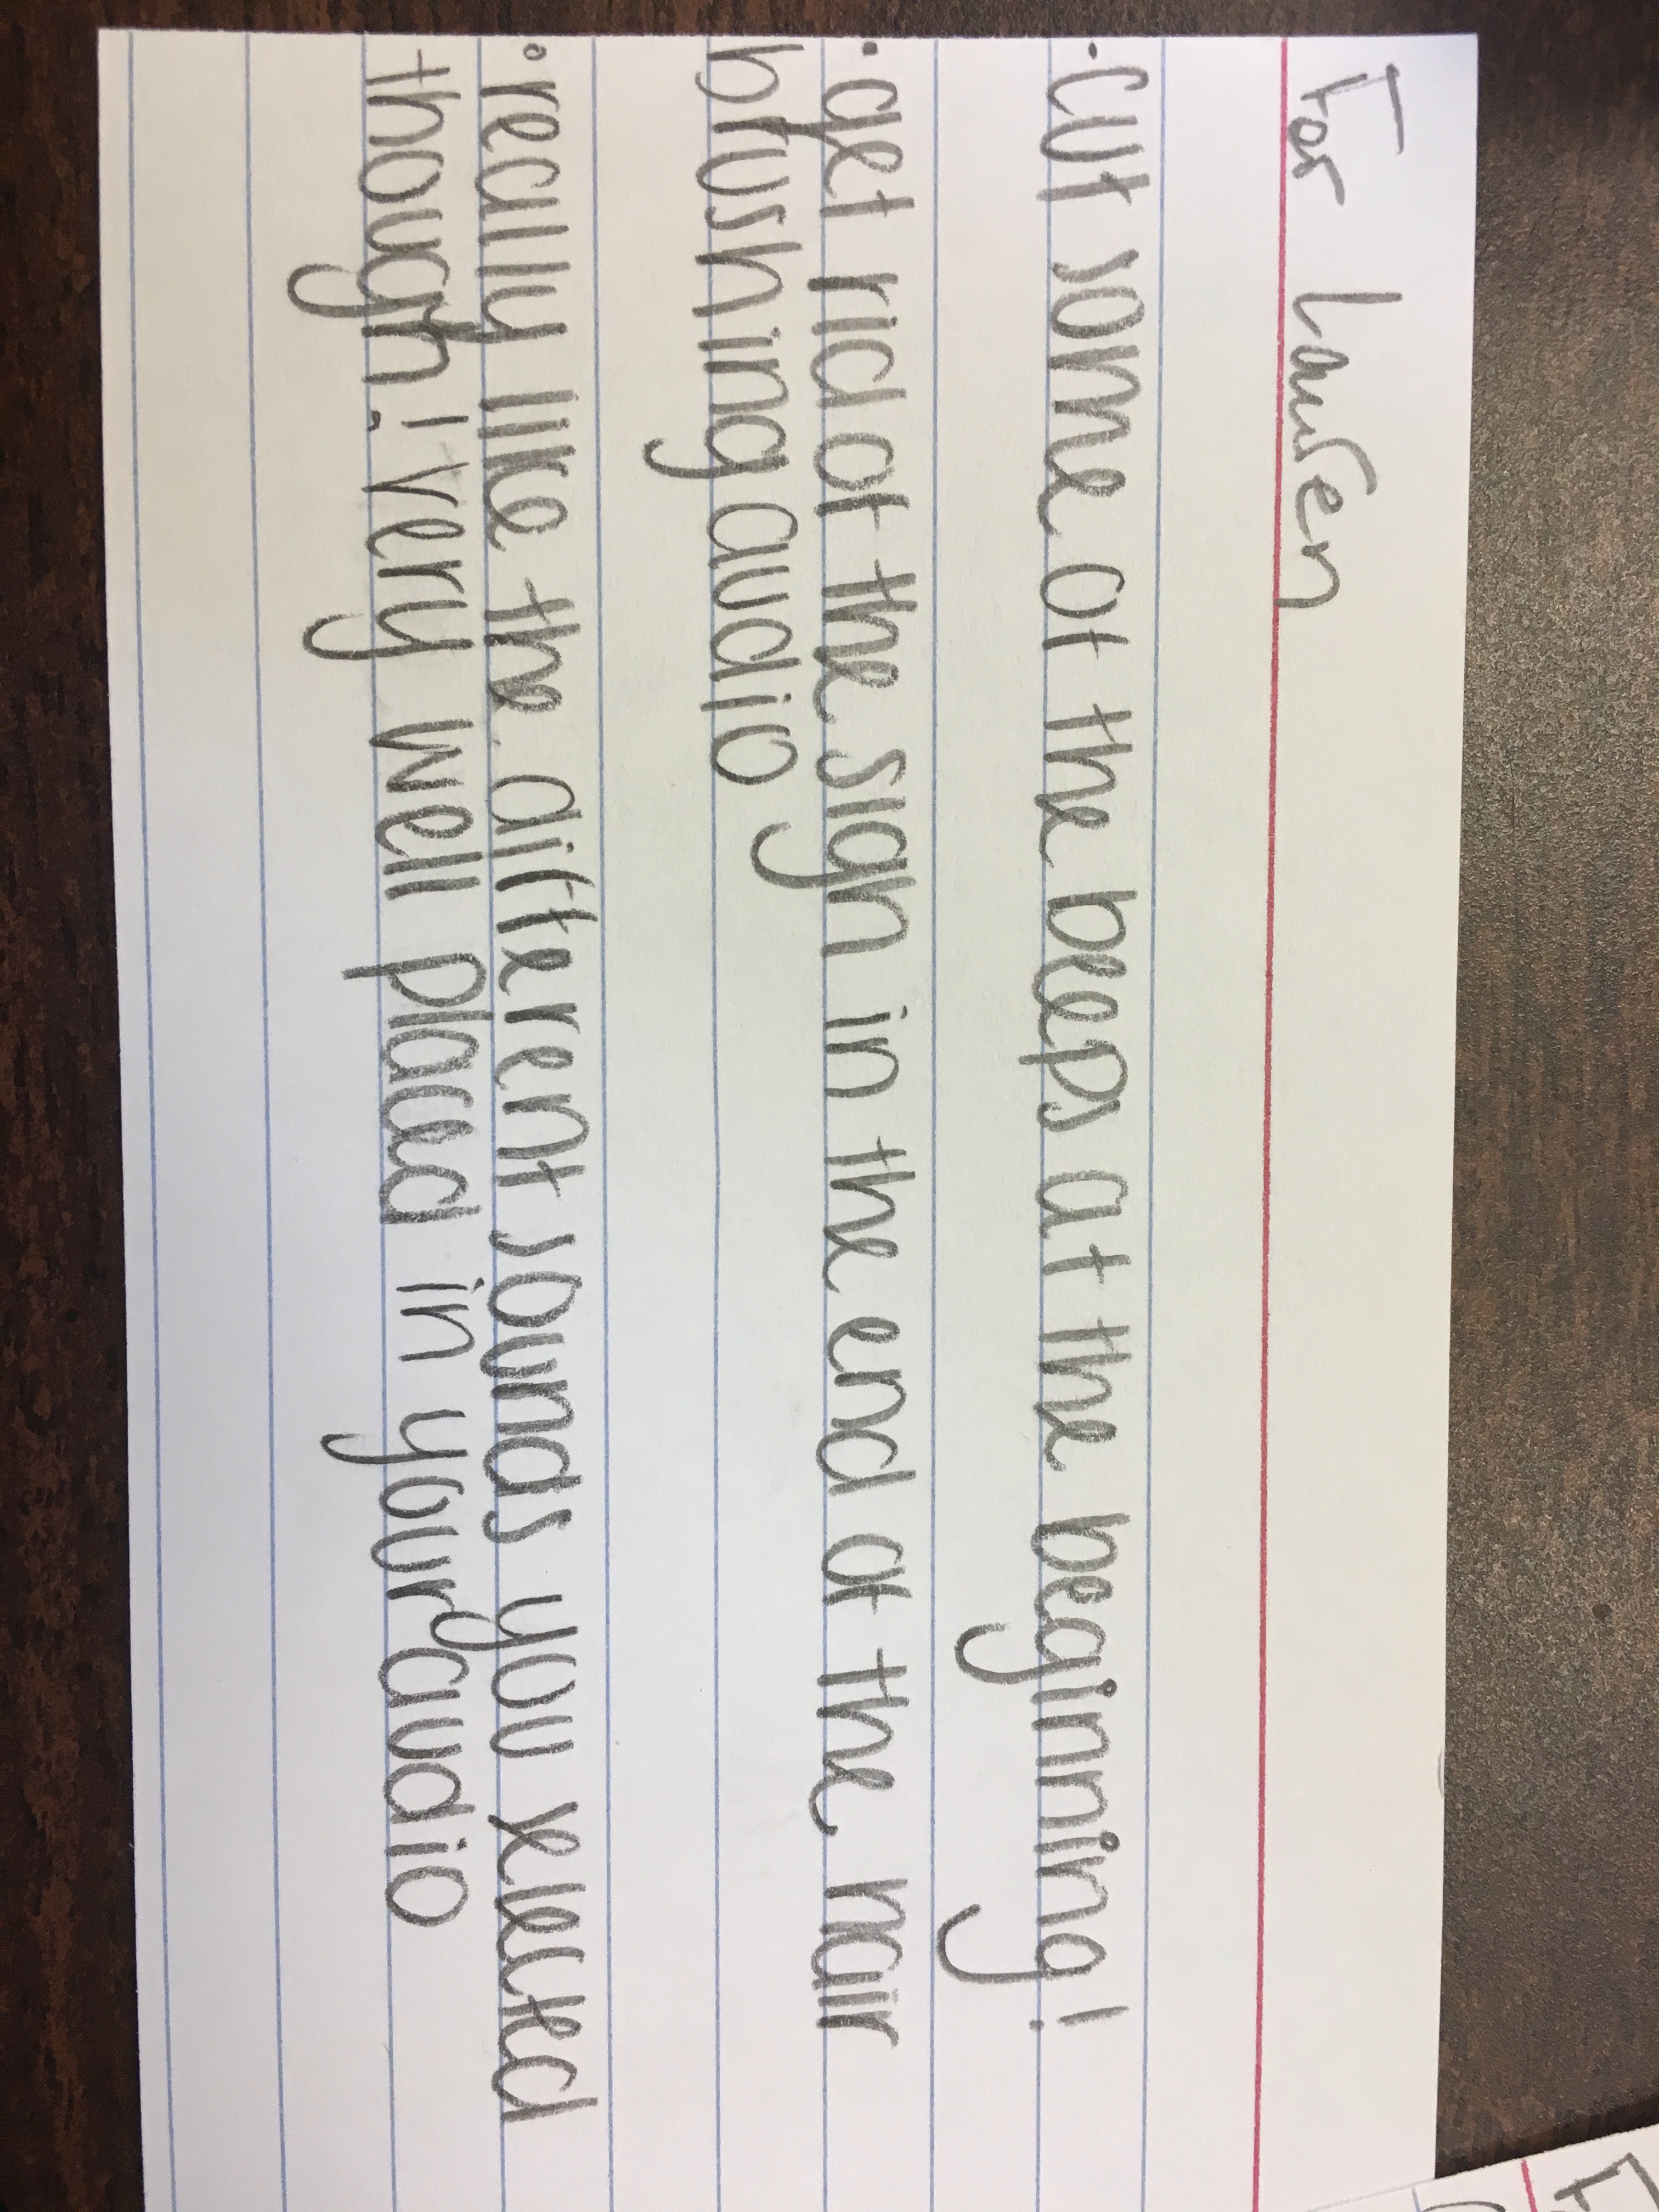 For Lauren
• cut some of the beeps at the beginning!
• get rid of the sign in the end of the hair
brushing audio
• really like the different sounds you selected
though! very well placed in your audio